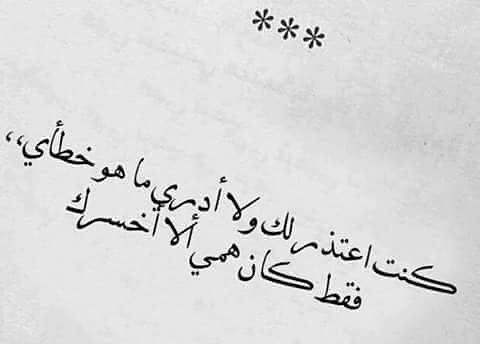 ***
كنت اعتذر لك ولا أدري ما هو خطأي،،
فقط كان همي ألا أخسرك